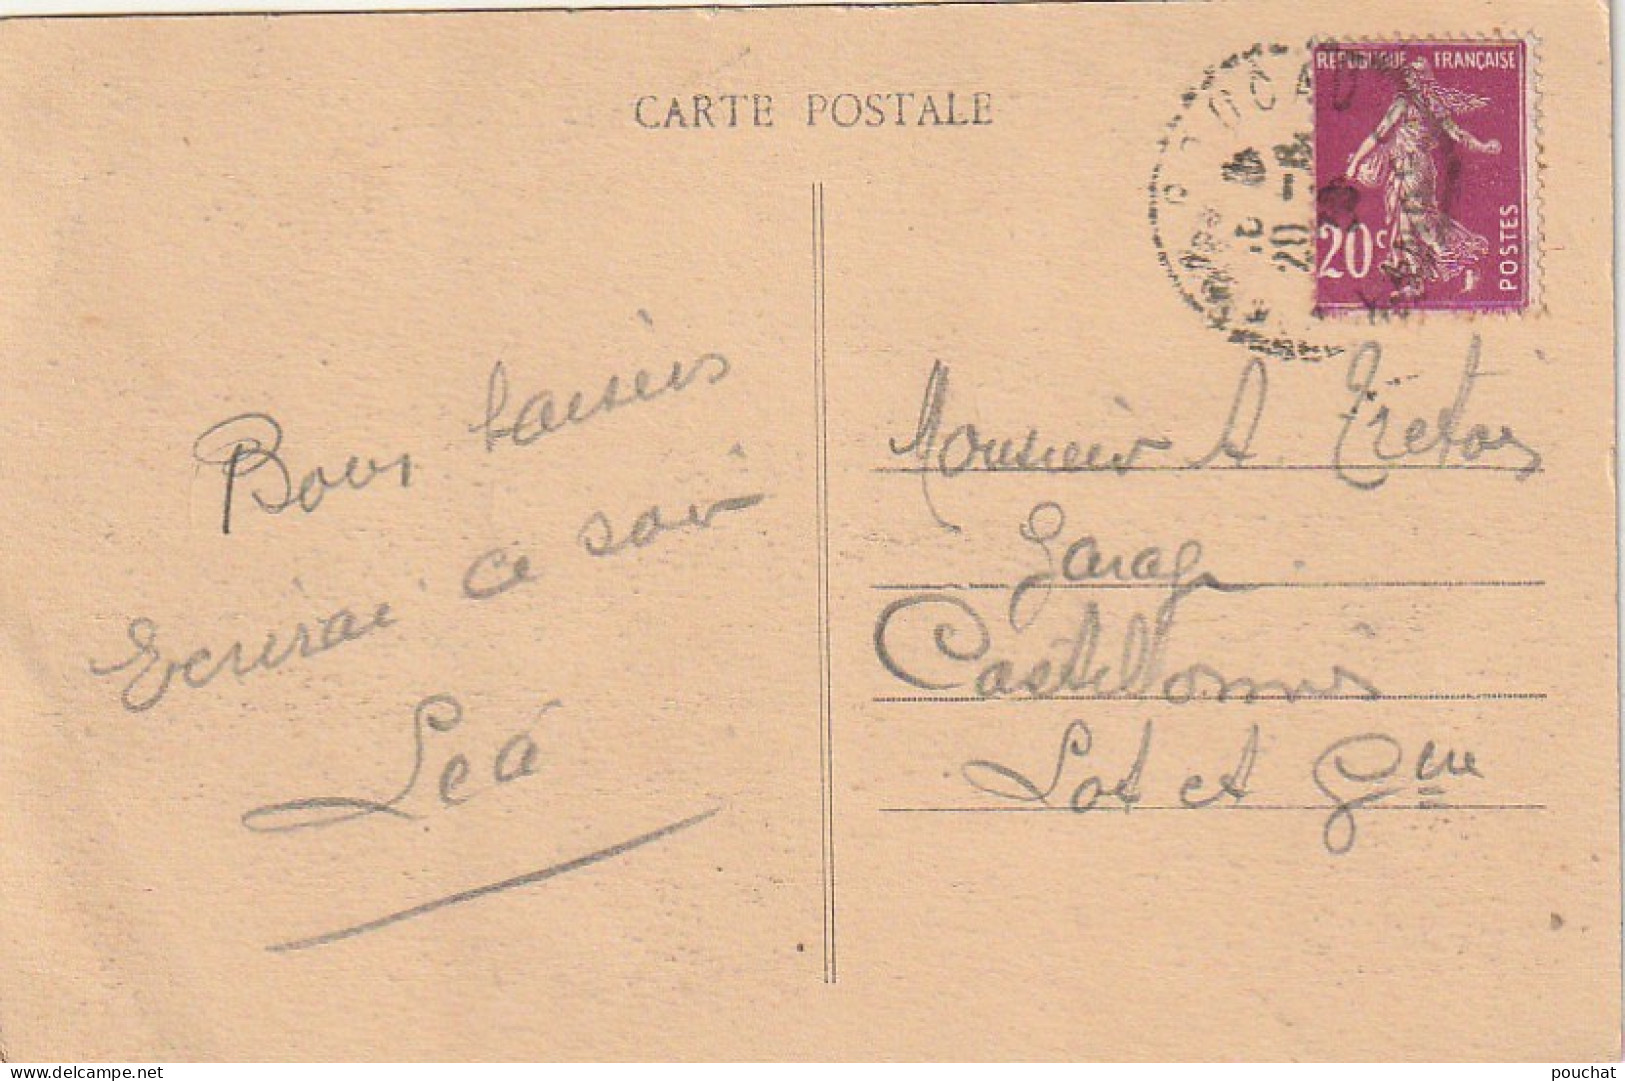 CARTE POSTALE
REPUBLIQUE FRANÇAISE
20c
POSTES
20 -8
Bons baisers
Ecrirai ce soir
Léa
Monsieur A. Tretou
Garage
Castillonnès
Lot et Gne
pouchat